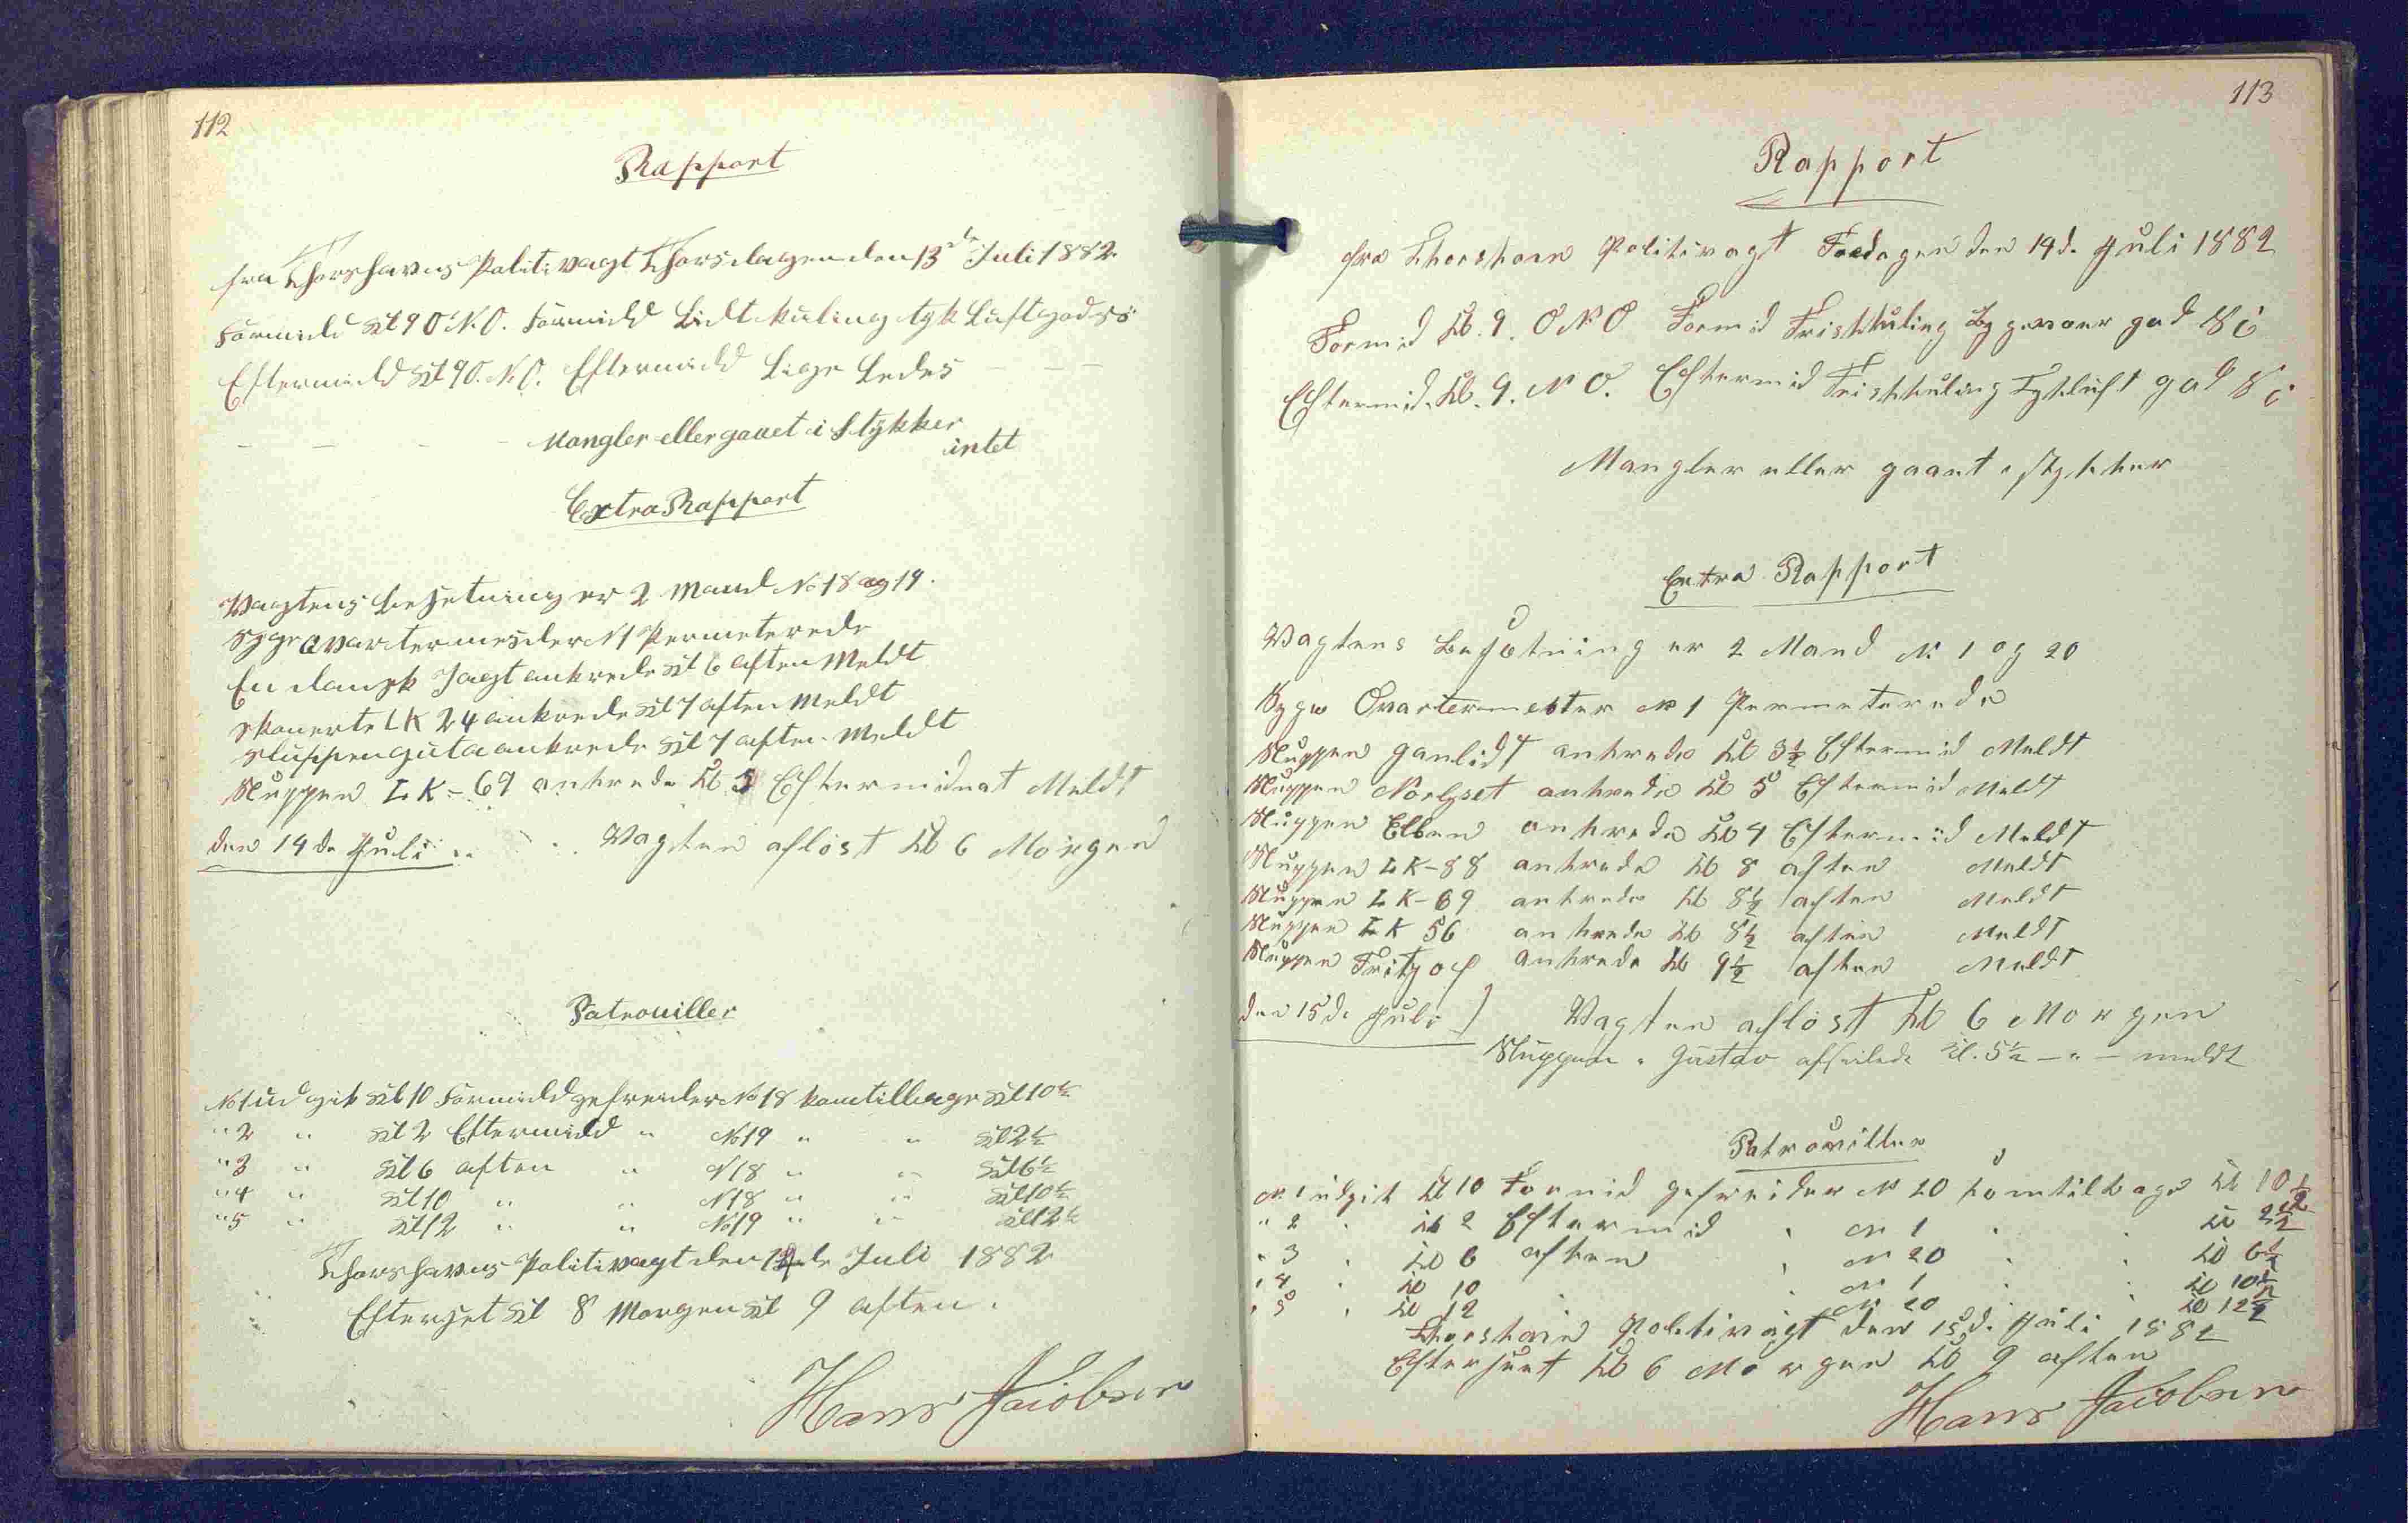 112
Rapport
fra Thorshavns Politivagt Thorsdagen den 13de Juli 1882.
Formidd Kl 9 O.N.O. Formidd Lidt kuling tyk Luft god Sö
Eftermidd Kl 9 O.N.O. Eftermidd Lige Ledes — — —
— — — — Mangler eller gaaet i Stykker
intet
Extra Rapport
Vagtens besetning er 2 Mand No 18 og 19.
Syge Qvartermester N 1 Permeterede
En dansk Jagt ankrede Kl 6 aften Meldt
Skonerte LK 24 ankrede Kl 7 aften Meldt
Sluppen Guta ankrede Kl 7 aften Meldt
Sluppen LK - 69 ankrede Kl 5 Eftermidnat Meldt
den 14de Juli .. Vagten aflöst Kl 6 Morgen
Patrouiller
No 1 udgik Kl 10 Formidd gefreider No 18 kom tilbage Kl 10½
" 2 " Kl 2 Eftermidd " No 19 " " Kl 2½
" 3 " Kl 6 aften " N 18 " " Kl 6½
" 4 " Kl 10 " " N 18 " " Kl 10½
" 5 " Kl 12 " " No 19 " " Kl 12½
Thorshavns Politivagt den 14de Juli 1882
Efterset Kl 8 Morgen Kl 9 aften.
Hans Jacobsen
113
Rapport
fra Thorshavn Politivagt Fredagen den 14de Juli 1882
Formid Kl. 9. O N O Formid Frisk kuling god Sö
Eftermid. Kl. 9. N O. Eftermid Frisk kuling Tykluft god Sö
Mangler eller gaaet i stykker
Extra Rapport
Vagtens Besætning er 2 Mand N. 1 og 20
Syge Qvartermester N 1 Permeterede
Sluppen Ganlidt ankrede Kl 3½ Eftermid Meldt
Sluppen Norlyset ankrede Kl 5 Eftermid Meldt
Sluppen Elben ankrede Kl 7 Eftermid Meldt
Sluppen LK - 88 ankrede Kl 8 aften Meldt
Sluppen LK - 69 ankrede Kl 8½ aften Meldt
Sluppen LK 56 ankrede Kl 8½ aften Meldt
Sluppen Fritjof ankrede Kl 9½ aften Meldt
den 15de Juli Vagten aflöst Kl 6 Morgen
Sluppen " Gustav afseilede Kl. 5½ — " — meldt
Patrouiller
N. 1 udgik Kl 10 Formid gefreider N 20 kom tilbage Kl 10½
" 2 " Kl 2 Eftermid " N 1 " Kl 2½
" 3 " Kl 6 aften " N 20 " " Kl 6½
" 4 " Kl 10 " N 1 " " Kl 10½
" 5 " Kl 12 N 20 Kl 12½
Thorshavn Politivagt den 15de Juli 1882
Efterseet Kl 6 Morgen Kl 9 aften
Hans Jacobsen